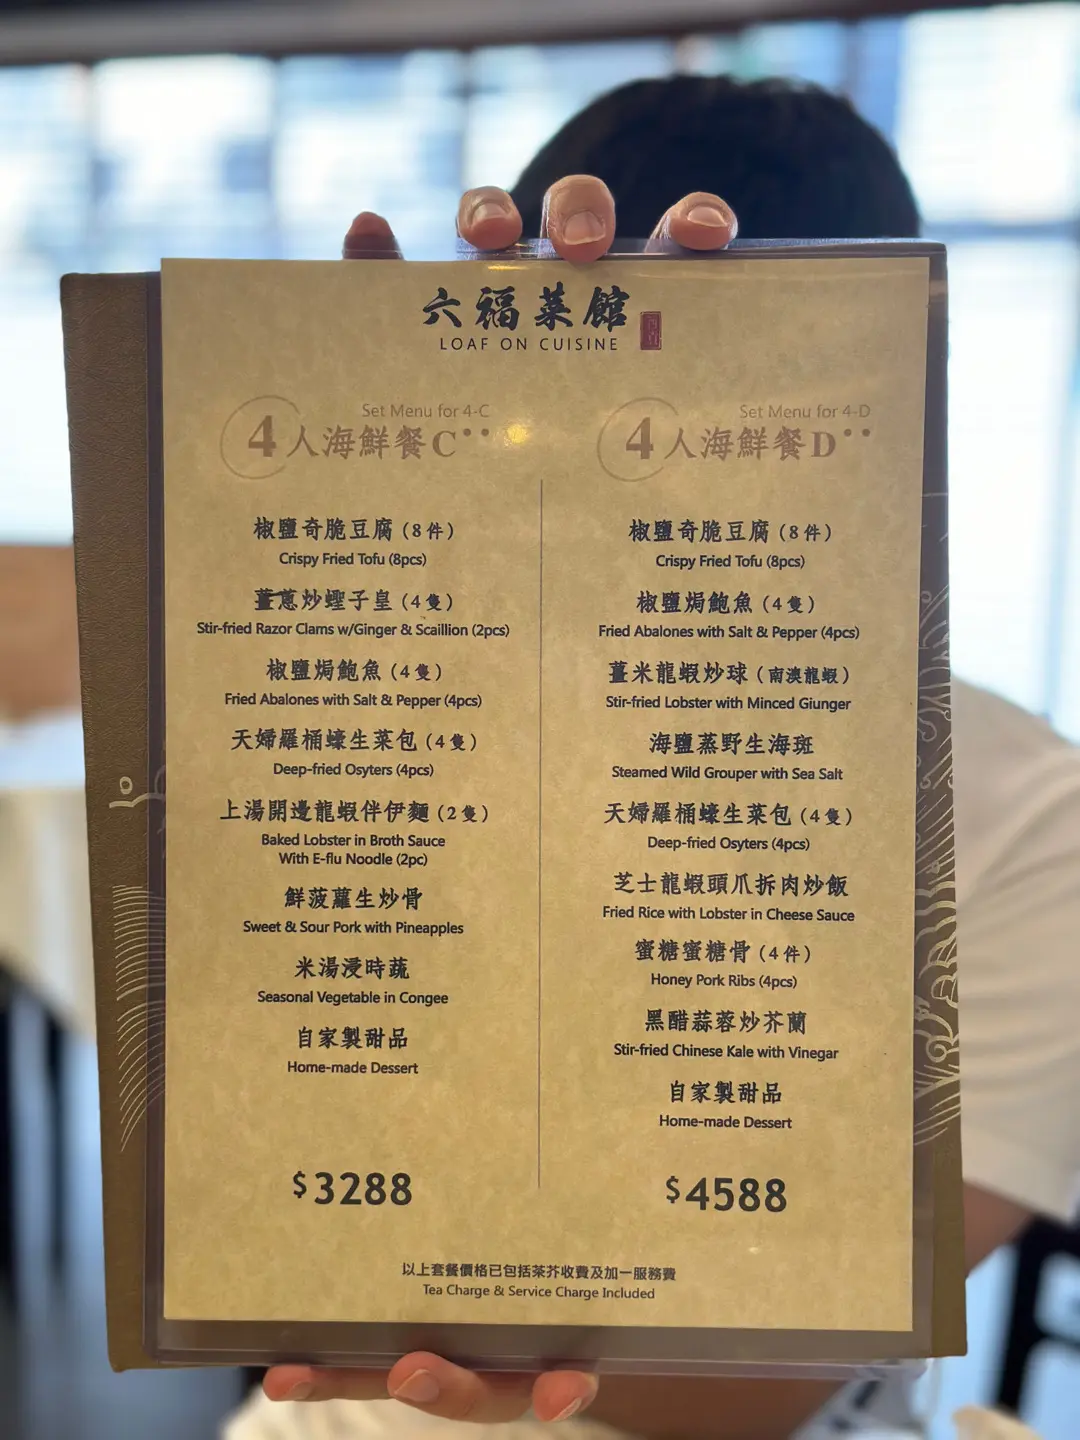 六福菜館
西貢
LOAF ON CUISINE
Set Menu for 4-C
4人海鮮餐C
椒鹽奇脆豆腐 (8件)
Crispy Fried Tofu (8pcs)
薑蔥炒蟶子皇 (4隻)
Stir-fried Razor Clams w/Ginger & Scaillion (2pcs)
椒鹽焗鮑魚 (4隻)
Fried Abalones with Salt & Pepper (4pcs)
天婦羅桶蠔生菜包 (4隻)
Deep-fried Osyters (4pcs)
上湯開邊龍蝦伴伊麵 (2隻)
Baked Lobster in Broth Sauce
With E-flu Noodle (2pc)
鮮菠蘿生炒骨
Sweet & Sour Pork with Pineapples
米湯浸時蔬
Seasonal Vegetable in Congee
自家製甜品
Home-made Dessert
$3288
Set Menu for 4-D
4人海鮮餐D
椒鹽奇脆豆腐 (8件)
Crispy Fried Tofu (8pcs)
椒鹽焗鮑魚 (4隻)
Fried Abalones with Salt & Pepper (4pcs)
薑米龍蝦炒球 (南澳龍蝦)
Stir-fried Lobster with Minced Giunger
海鹽蒸野生海斑
Steamed Wild Grouper with Sea Salt
天婦羅桶蠔生菜包 (4隻)
Deep-fried Osyters (4pcs)
芝士龍蝦頭爪拆肉炒飯
Fried Rice with Lobster in Cheese Sauce
蜜糖蜜糖骨 (4件)
Honey Pork Ribs (4pcs)
黑醋蒜蓉炒芥蘭
Stir-fried Chinese Kale with Vinegar
自家製甜品
Home-made Dessert
$4588
以上套餐價格已包括茶芥收費及加一服務費
Tea Charge & Service Charge Included